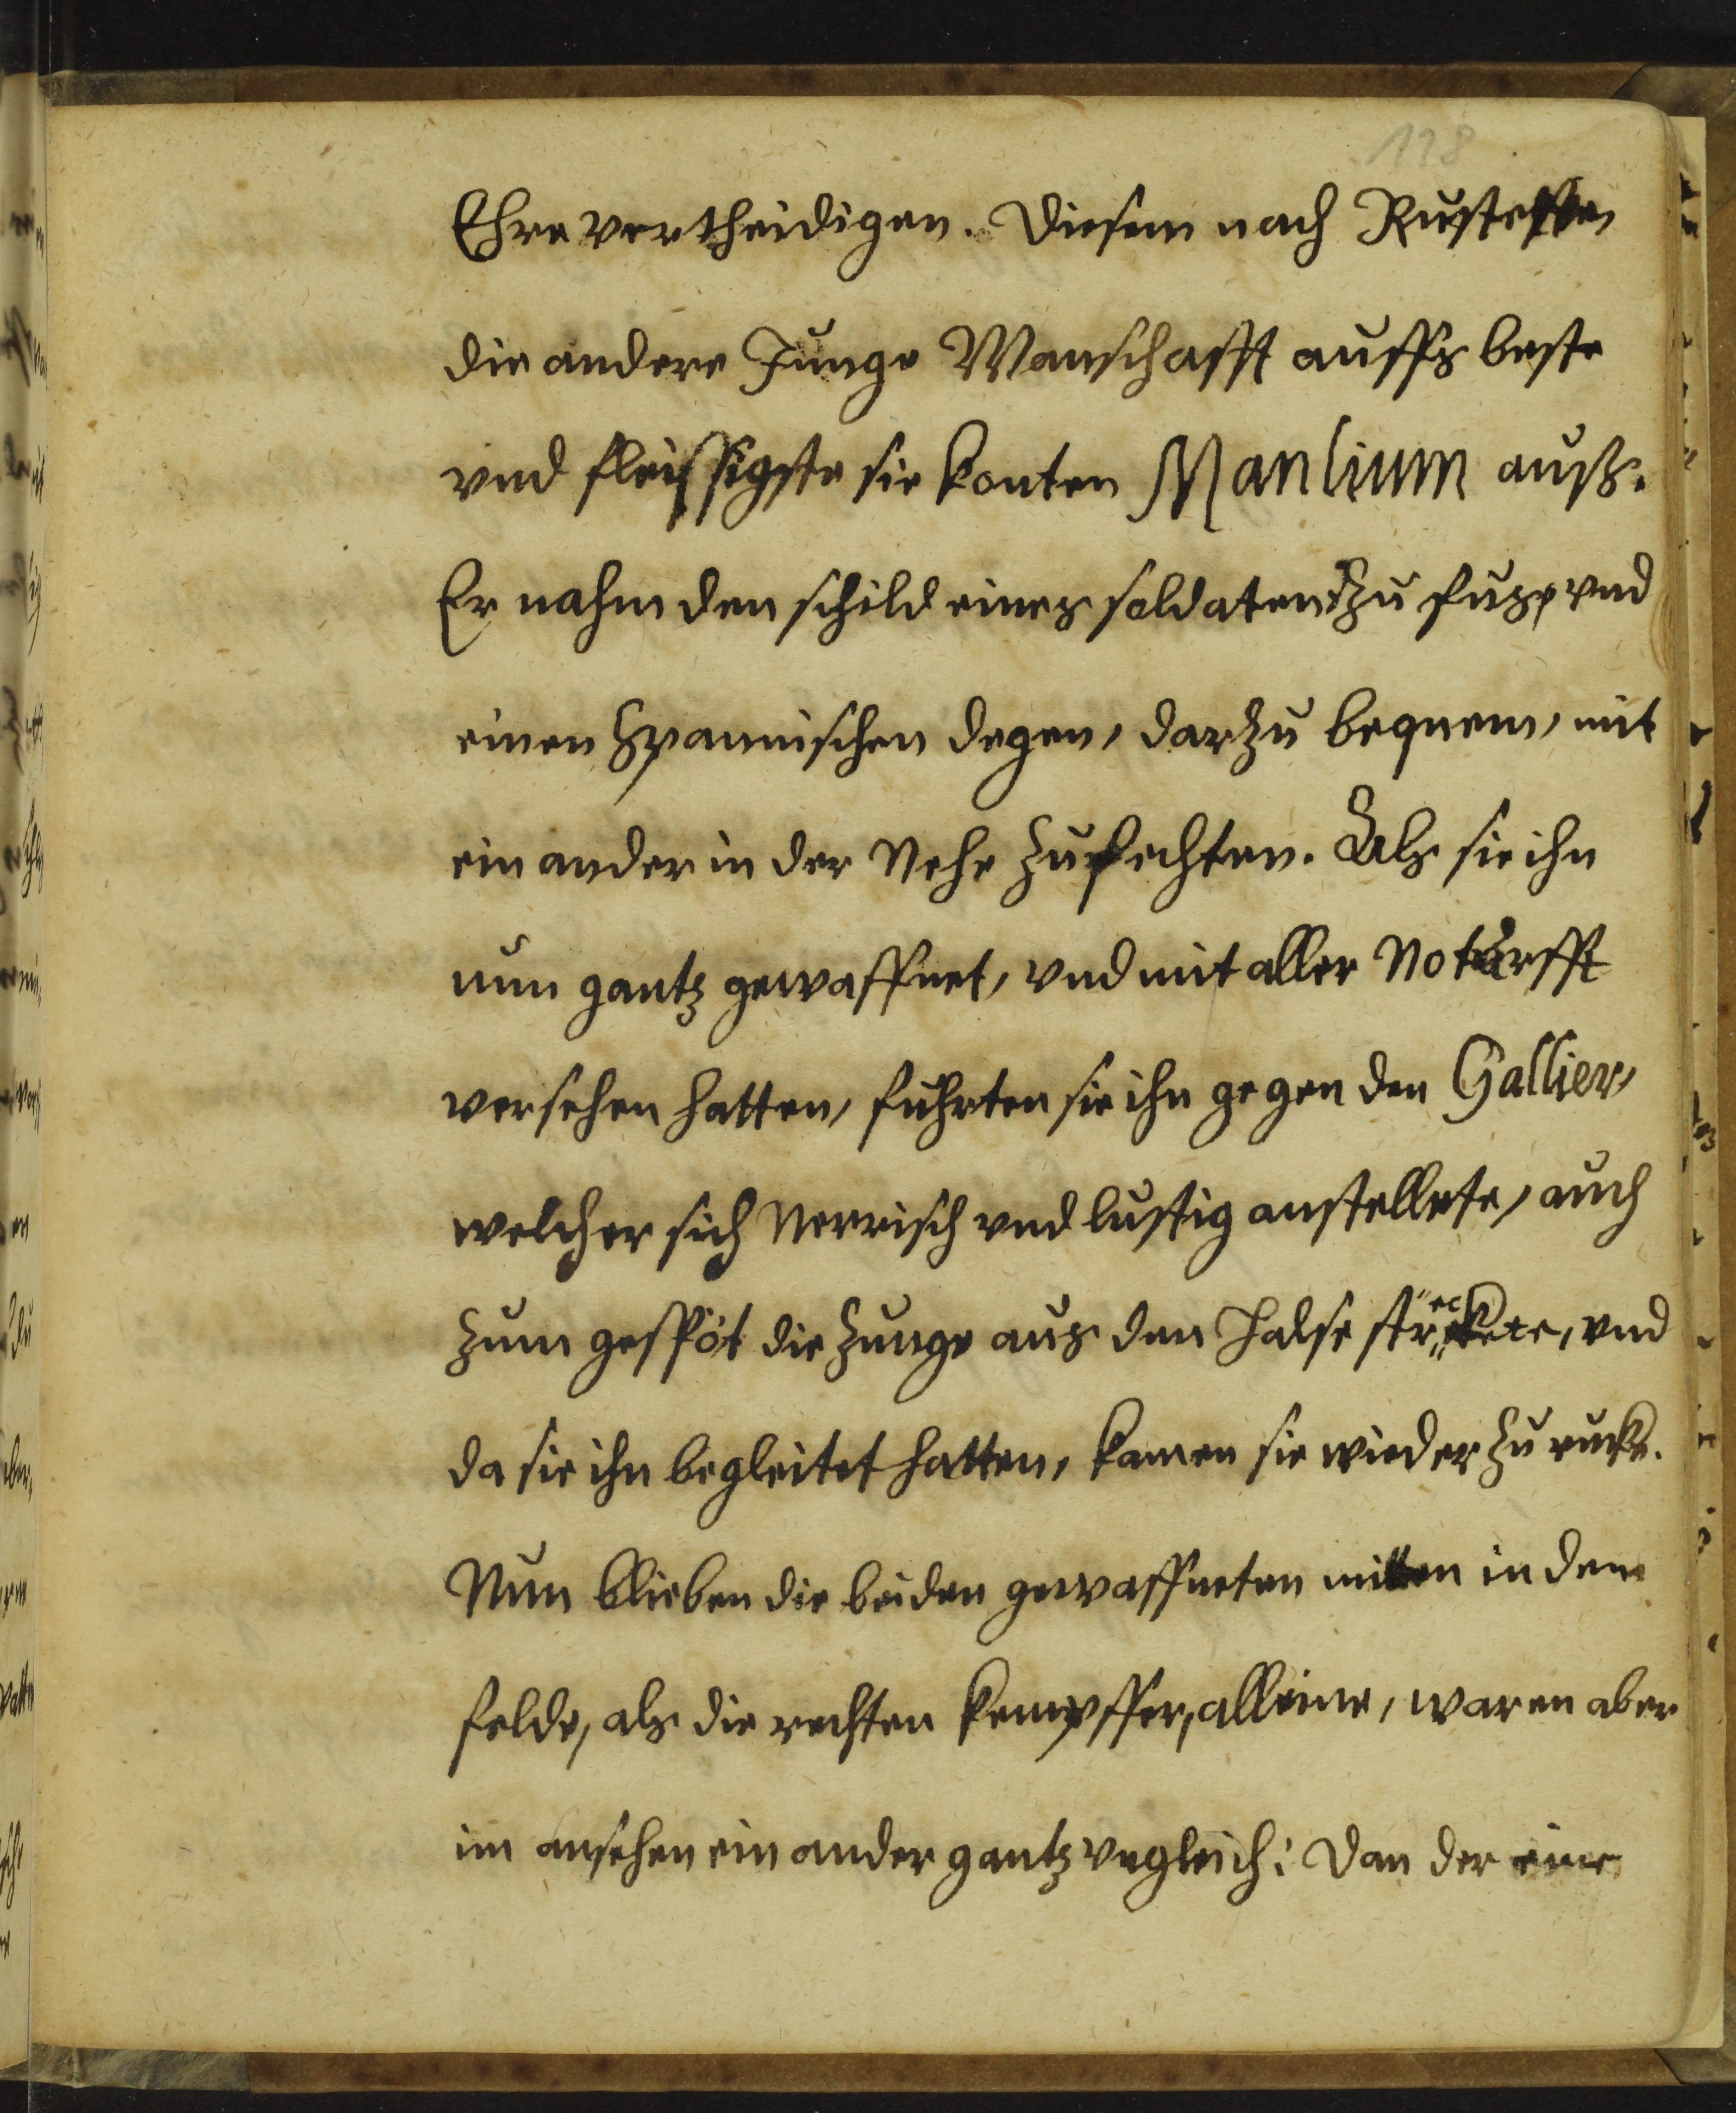 118
Ehre vertheidigen. Diesem nach Rusteten
die andere Junge Manschafft auffs beste
vnd fleissigste sie konten Manlium auß.
Er nahm den schild eines soldatens zu fuß, vnd
einen Spannischen degen, darzu bequem, mit
ein ander in der Nehe zufechten. Als sie ihn
nun gantz gewaffnet, vnd mit aller Notturfft
versehen hatten, fuhrten sie ihn gegen den Gallier,
welcher sich Nerrisch vnd lustig anstellete, auch
zum gespöt die Zunge aus den Halse streckete, vnd
da sie ihn begleitet hatten, kamen sie wieder zu ruck.
Nun blieben die beiden gewaffneten mitten in dem
felde, als die rechten kempffer, alleine, waren aber
im ansehen ein ander gantz vngleich: Dan der eine